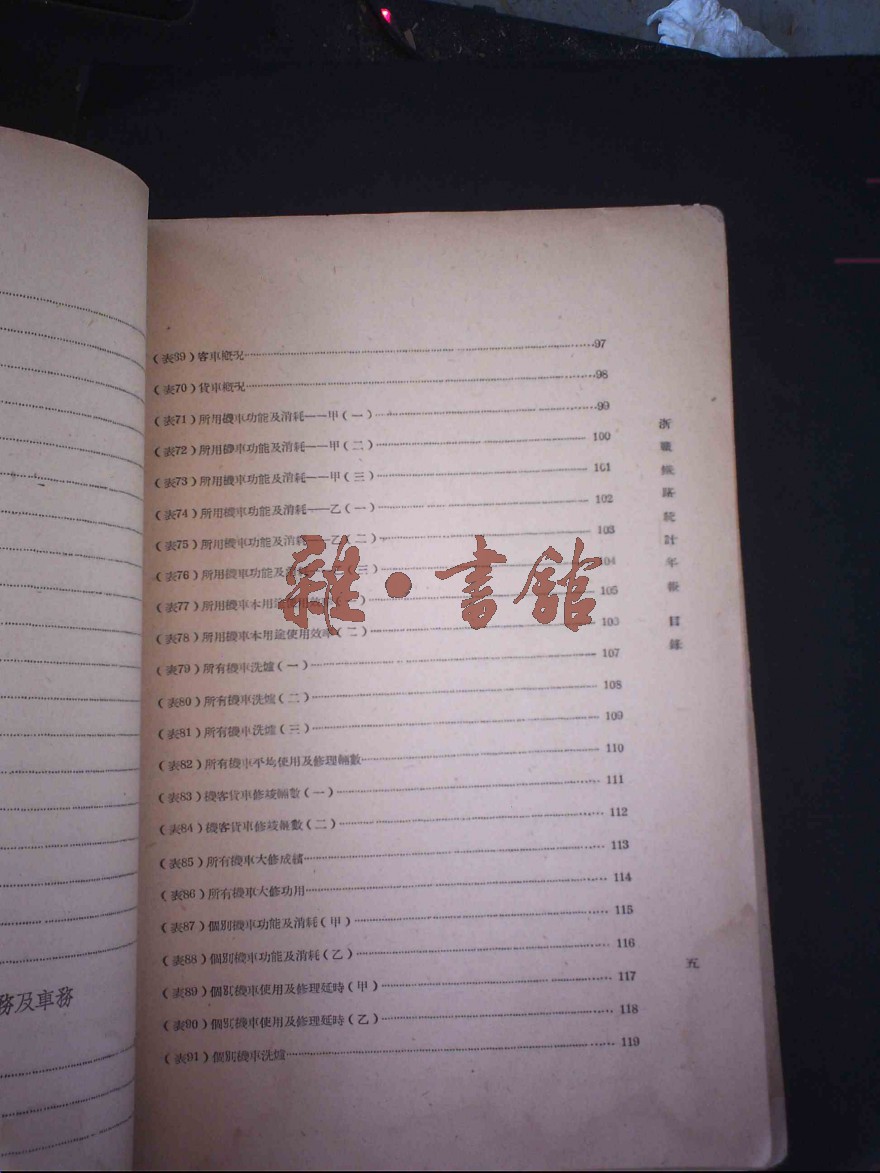 (表69)客車概况 97
(表70)貨車概况 98
(表71)所用機車功能及消耗——甲(一) 99
(表72)所用機車功能及消耗——甲(二) 100
(表73)所用機車功能及消耗——甲(三) 101
(表74)所用機車功能及消耗——乙(一) 102
(表75)所用機車功能及消耗——乙(二) 103
(表76)所用機車功能及消耗——乙(三) 104
(表77)所用機車本用途使用效率(一) 105
(表78)所用機車本用途使用效率(二) 106
(表79)所有機車洗爐(一) 107
(表80)所有機車洗爐(二) 108
(表81)所有機車洗爐(三) 109
(表82)所有機車平均使用及修理輛數 110
(表83)機客貨車修竣輛數(一) 111
(表84)機客貨車修竣輛數(二) 112
(表85)所有機車大修成績 113
(表86)所有機車大修功用 114
(表87)個別機車功能及消耗(甲) 115
(表88)個別機車功能及消耗(乙) 116
(表89)個別機車使用及修理延時(甲) 117
(表90)個別機車使用及修理延時(乙) 118
(表91)個別機車洗爐 119
浙贛鐵路統計年報 目錄
五
務及車務
雜·書館